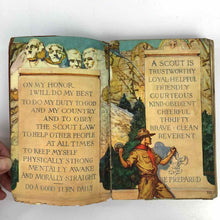 ON MY HONOR
I WILL DO MY BEST
TO DO MY DUTY TO GOD
AND MY COUNTRY
AND TO OBEY
THE SCOUT LAW
TO HELP OTHER PEOPLE
AT ALL TIMES
TO KEEP MYSELF
PHYSICALLY STRONG
MENTALLY AWAKE
AND MORALLY STRAIGHT
DO A GOOD TURN DAILY
A SCOUT IS
TRUSTWORTHY
LOYAL HELPFUL
FRIENDLY
COURTEOUS
KIND OBEDIENT
CHEERFUL
THRIFTY
BRAVE CLEAN
REVERENT
BE PREPARED